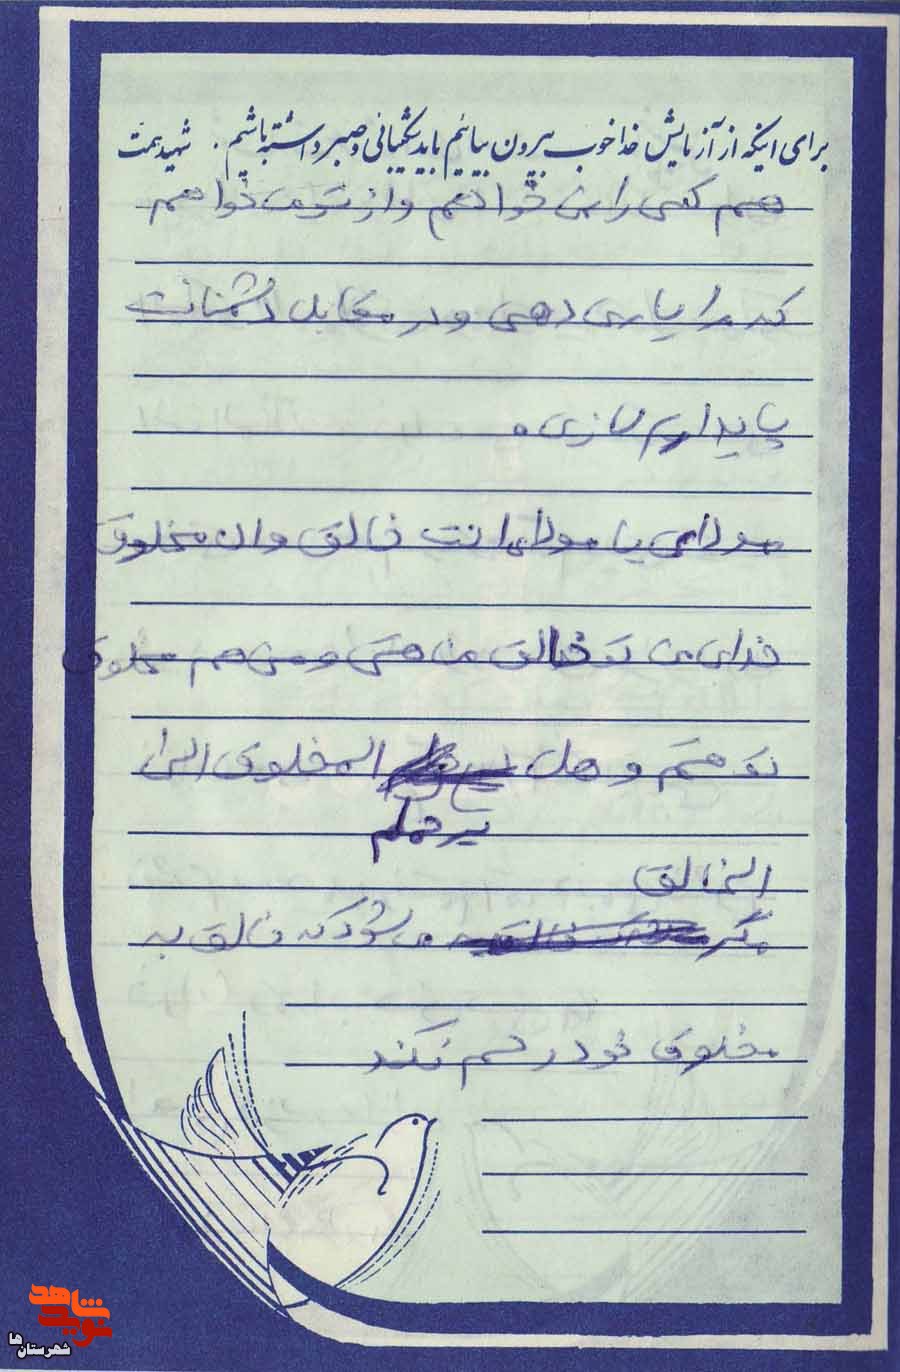 برای اینکه از آزمایش خدا خوب بیرون بیائیم باید شکیبائی و صبر داشته باشیم. شهید همت
هم کسی را می خواهم و از تو می خواهم
که مرا یاری دهی و در مقابل دشمنانت
پایدارم سازی.
مولای یا مولای انت خالق و ان مخلوق
خدای من تو خالق من هستی و من هم مخلوق
تو هستم و هل المخلوق الی
یرحمکم
الخالق
مگر می شود که خالق به
مخلوق خود رحم نکند
نوید شاهد
شهرستان ها